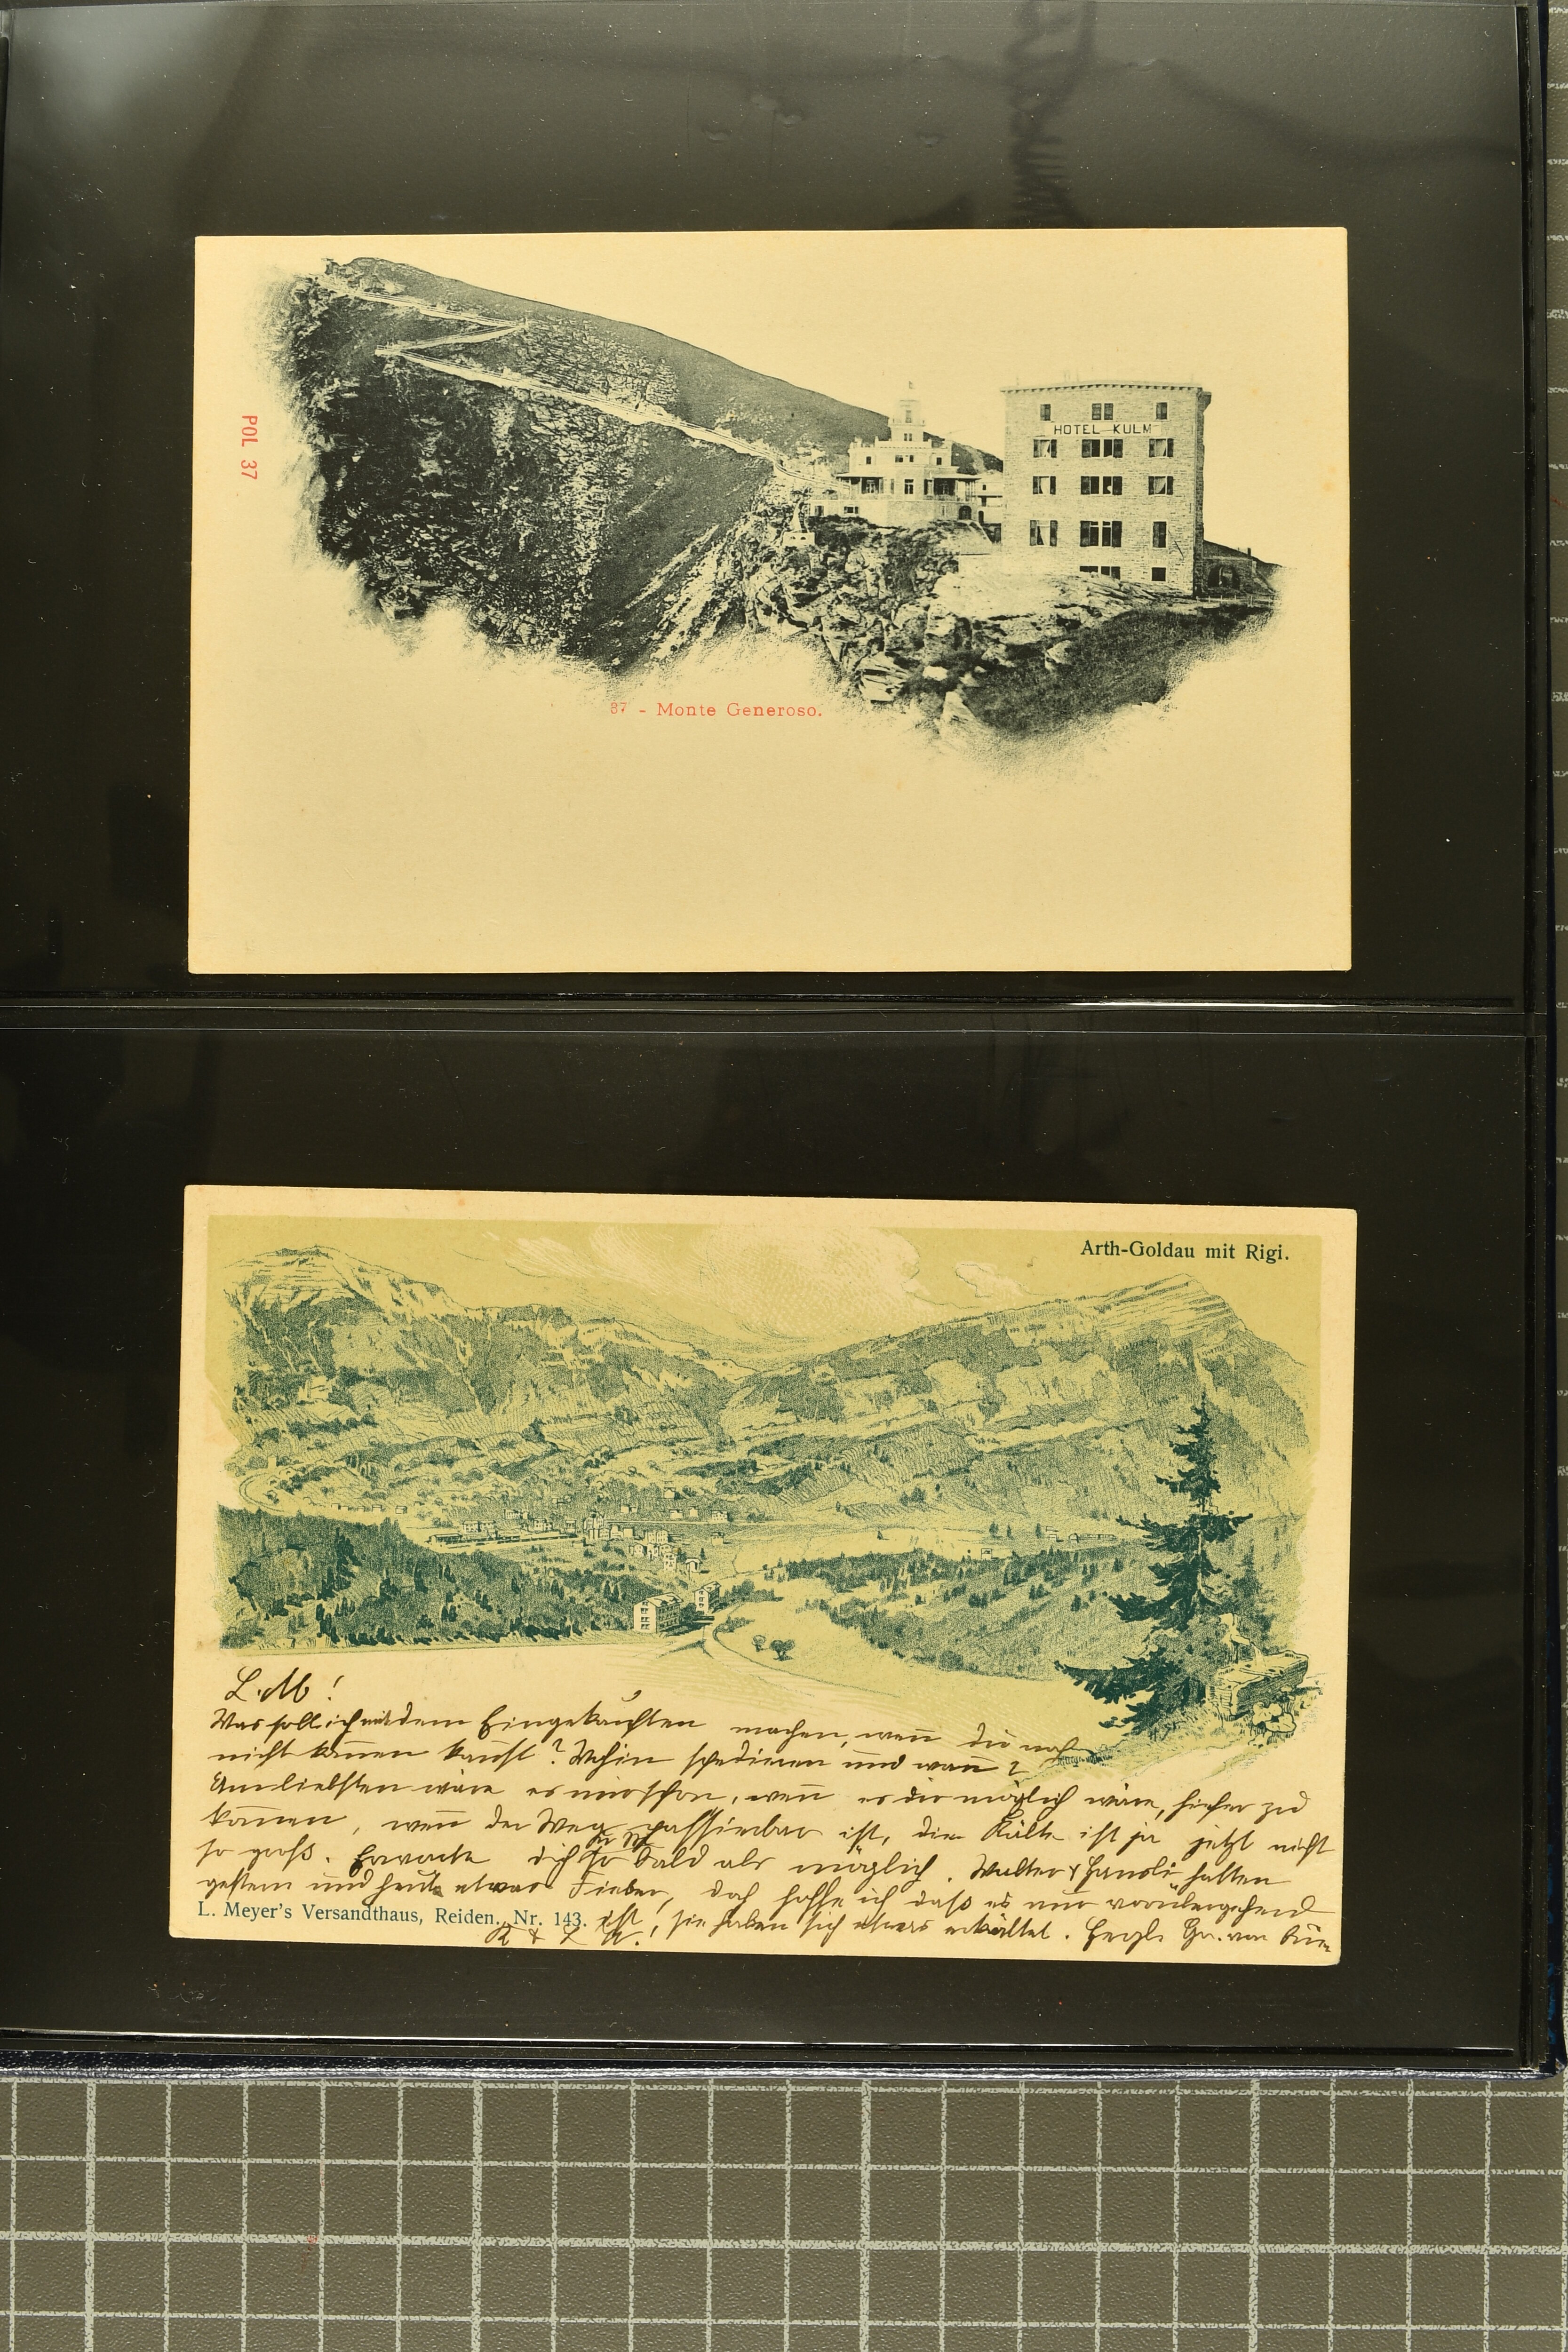 HOTEL KULM
POL 37
37 - Monte Generoso.
Arth-Goldau mit Rigi.
L. M!
Was soll ich mit dem Eingekauften machen, wenn du noch
nicht kommen kannst? Wohin spedieren und wann?
Am liebsten wäre es mir schon, wenn es dir möglich wäre, hieher zu
kommen, wenn der Weg passierbar ist, die Kälte ist ja jetzt nicht
so groß. Erwarte dich so bald als möglich. Walter & Hansli hatten
gestern und heute etwas Fieber, doch hoffe ich daß es nur vorübergehend
L. Meyer's Versandthaus, Reiden. Nr. 143.
ist, sie haben sich etwas erkältet. Herzl. Gr. von